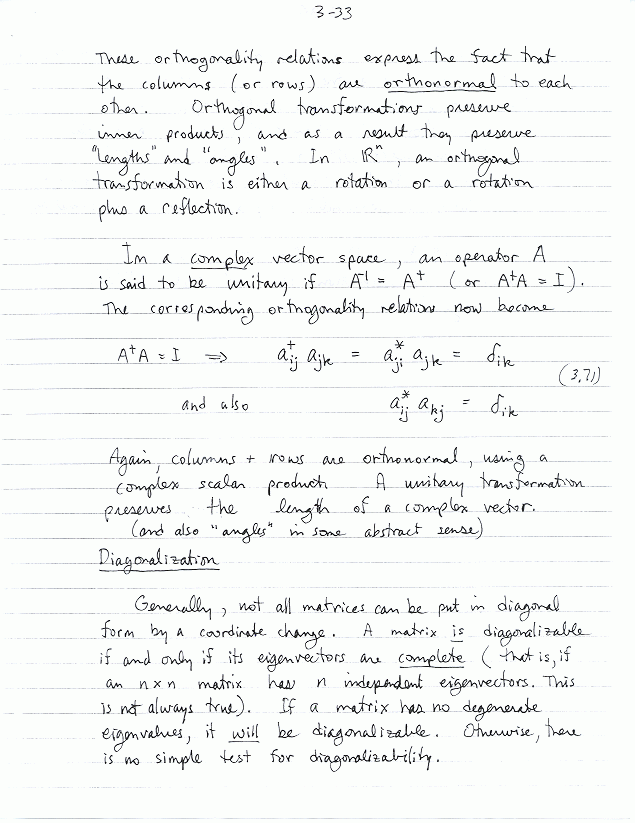 3-33
These orthogonality relations express the fact that
the columns (or rows) are orthonormal to each
other. Orthogonal transformations preserve
inner products, and as a result they preserve
"lengths" and "angles". In ℝⁿ, an orthogonal
transformation is either a rotation or a rotation
plus a reflection.
In a complex vector space, an operator A
is said to be unitary if A⁻¹ = A† (or A†A = I).
The corresponding orthogonality relations now become
A†A = I ⟹ a†_ij a_jk = a*_ji a_jk = δ_ik
(3.71)
and also a*_ij a_kj = δ_ik
Again, columns + rows are orthonormal, using a
complex scalar product A unitary transformation
preserves the length of a complex vector.
(and also "angles" in some abstract sense)
Diagonalization
Generally, not all matrices can be put in diagonal
form by a coordinate change. A matrix is diagonalizable
if and only if its eigenvectors are complete (that is, if
an n×n matrix has n independent eigenvectors. This
is not always true). If a matrix has no degenerate
eigenvalues, it will be diagonalizable. Otherwise, there
is no simple test for diagonalizability.